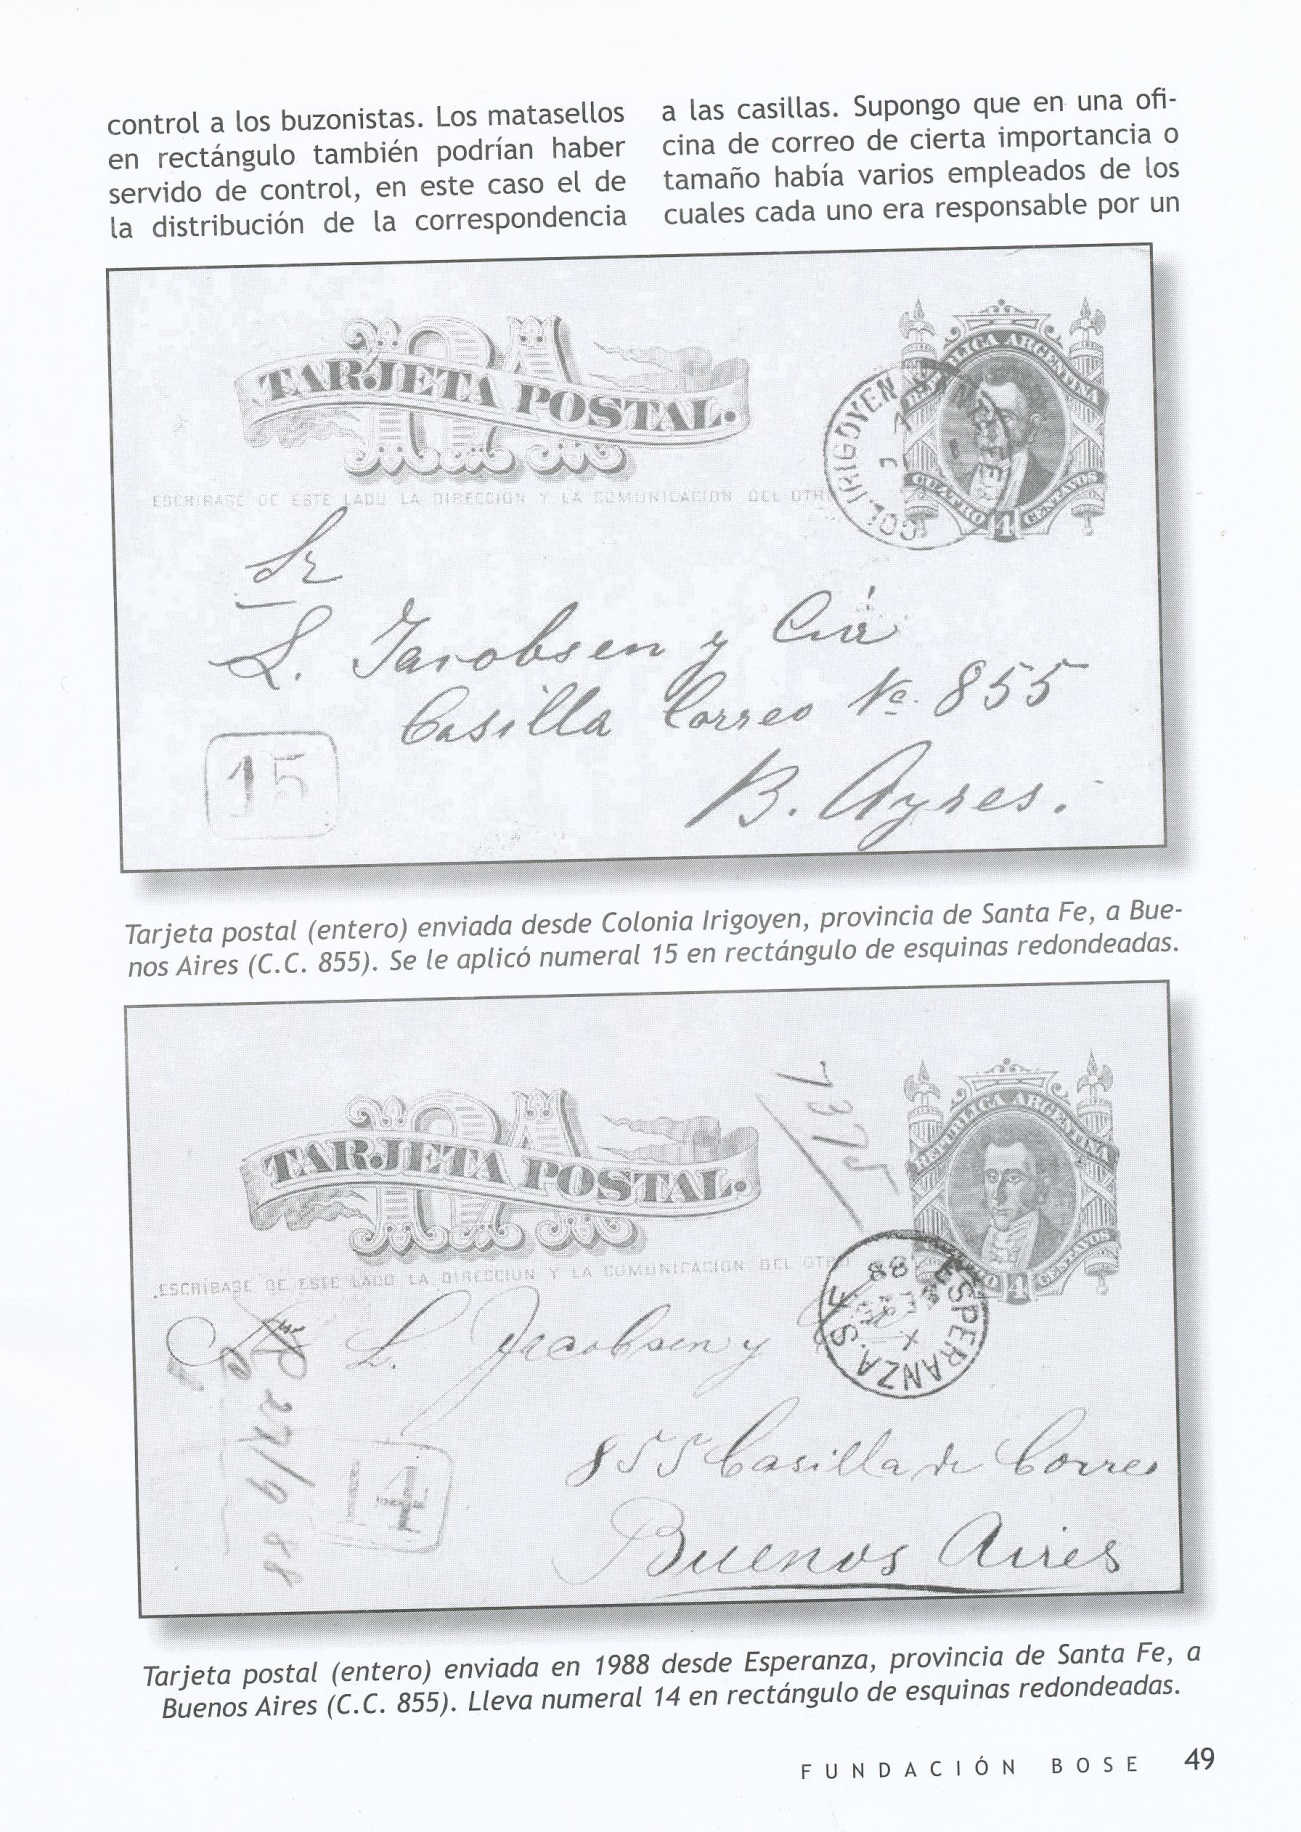 control a los buzonistas. Los matasellos
en rectángulo también podrían haber
servido de control, en este caso el de
la distribución de la correspondencia
a las casillas. Supongo que en una ofi-
cina de correo de cierta importancia o
tamaño había varios empleados de los
cuales cada uno era responsable por un
TARJETA POSTAL.
REPÚBLICA ARGENTINA
CUATRO 4 CENTAVOS
COL. IRIGOYEN
ESCRIBASE DE ESTE LADO LA DIRECCION Y LA COMUNICACION DEL OTRO
Sr
L. Jacobsen y Cía
Casilla Correo No. 855
15
B. Ayres.
Tarjeta postal (entero) enviada desde Colonia Irigoyen, provincia de Santa Fe, a Bue-
nos Aires (C.C. 855). Se le aplicó numeral 15 en rectángulo de esquinas redondeadas.
TARJETA POSTAL.
REPÚBLICA ARGENTINA
4 CENTAVOS
ESCRIBASE DE ESTE LADO LA DIRECCION Y LA COMUNICACION DEL OTRO
ESPERANZA. S. F.
88
L. Jacobsen y
27/9 88
855 Casilla de Correo
14
Buenos Aires
Tarjeta postal (entero) enviada en 1988 desde Esperanza, provincia de Santa Fe, a
Buenos Aires (C.C. 855). Lleva numeral 14 en rectángulo de esquinas redondeadas.
FUNDACIÓN BOSE 49